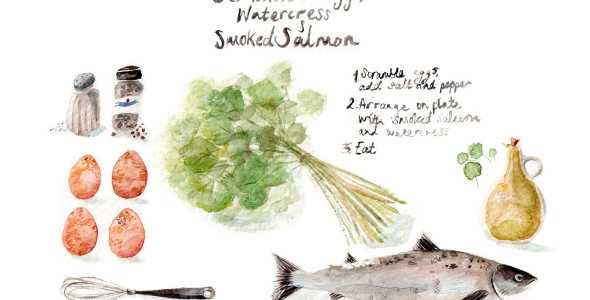 Watercress
&
Smoked Salmon
1 Scramble eggs,
add salt and pepper
2. Arrange on plate
with smoked salmon
and watercress
3. Eat